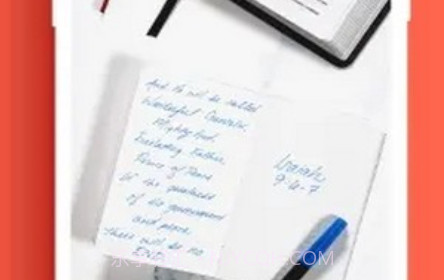 And He will be called
Wonderful Counselor,
Mighty God,
Everlasting Father,
Prince of Peace
Of the greatness
of his government
and peace
there will be no
END.
Isaiah
9:6-7
.COM